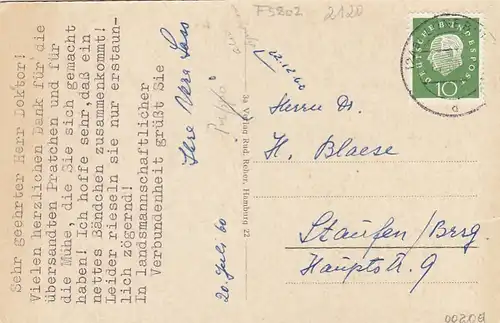 Sehr geehrter Herr Doktor!
Vielen herzlichen Dank für die
übersandten Pratchen und für
die Mühe, die Sie sich gemacht
haben! Ich hoffe sehr, daß ein
nettes Bändchen zusammenkommt!
Leider rieseln sie nur erstaun-
lich zögernd!
In landsmannschaftlicher
Verbundenheit grüßt Sie
Ihre Vera Lass
20. Juli 60
3a Verlag Rud. Reher, Hamburg 22
F5202 2120
12.12.60
DEUTSCHE BUNDESPOST
10
Herrn Dr.
H. Blaese
Staufen/Brsg.
Hauptstr. 9